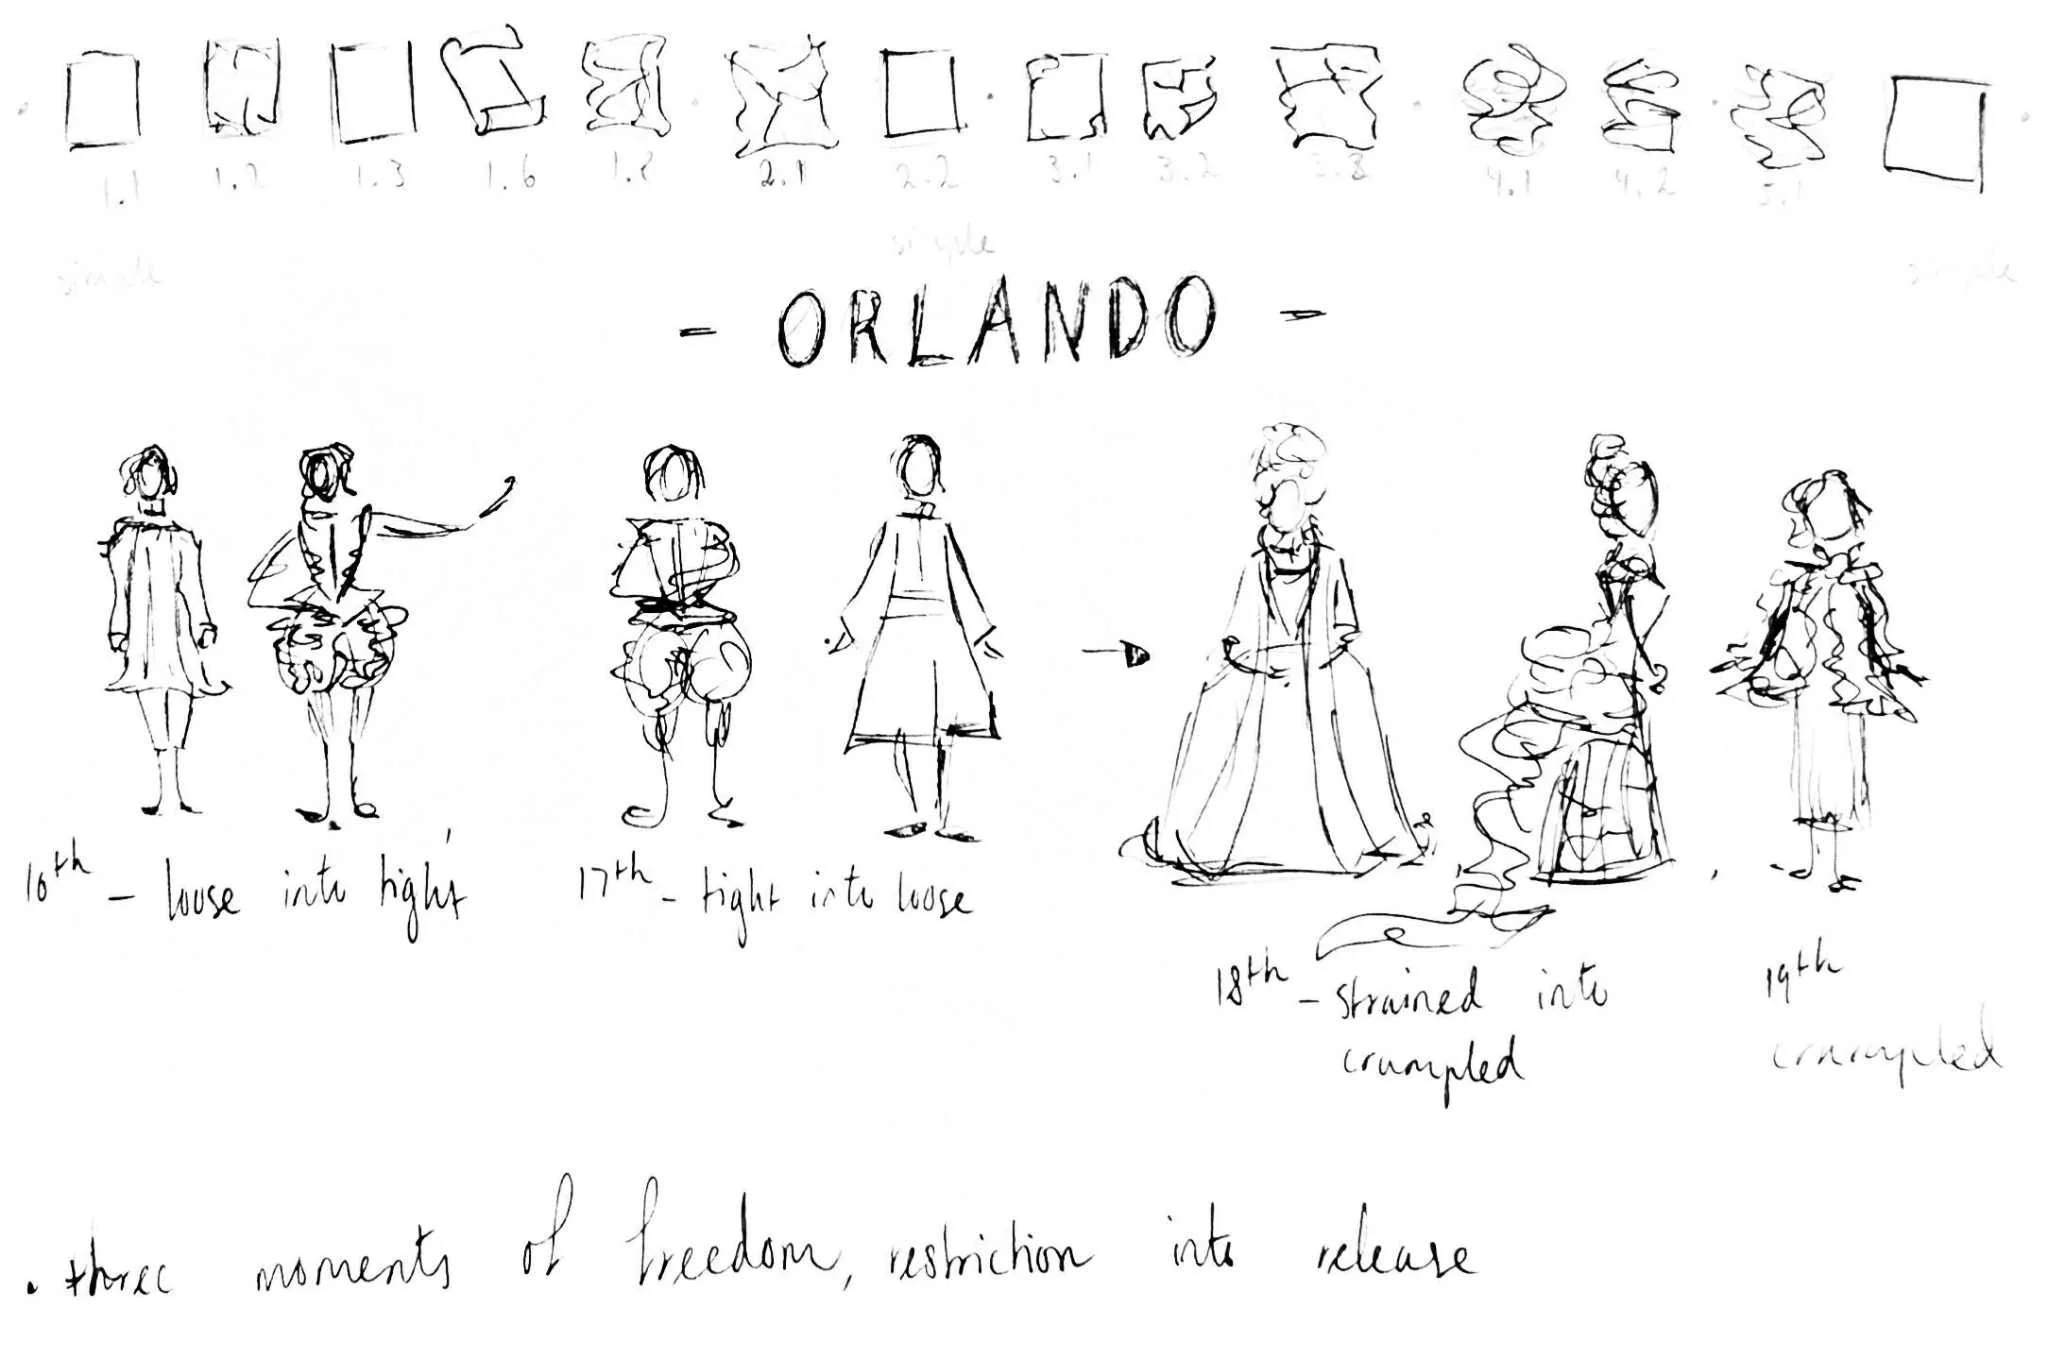 1.1 1.2 1.3 1.6 2.1 2.2 3.1 3.2 3.3 4.1 4.2 5.1
simple simple simple
- ORLANDO -
16th - loose into tight
17th - tight into loose
18th - strained into
crumpled
19th
crumpled
. three moments of freedom, restriction into release